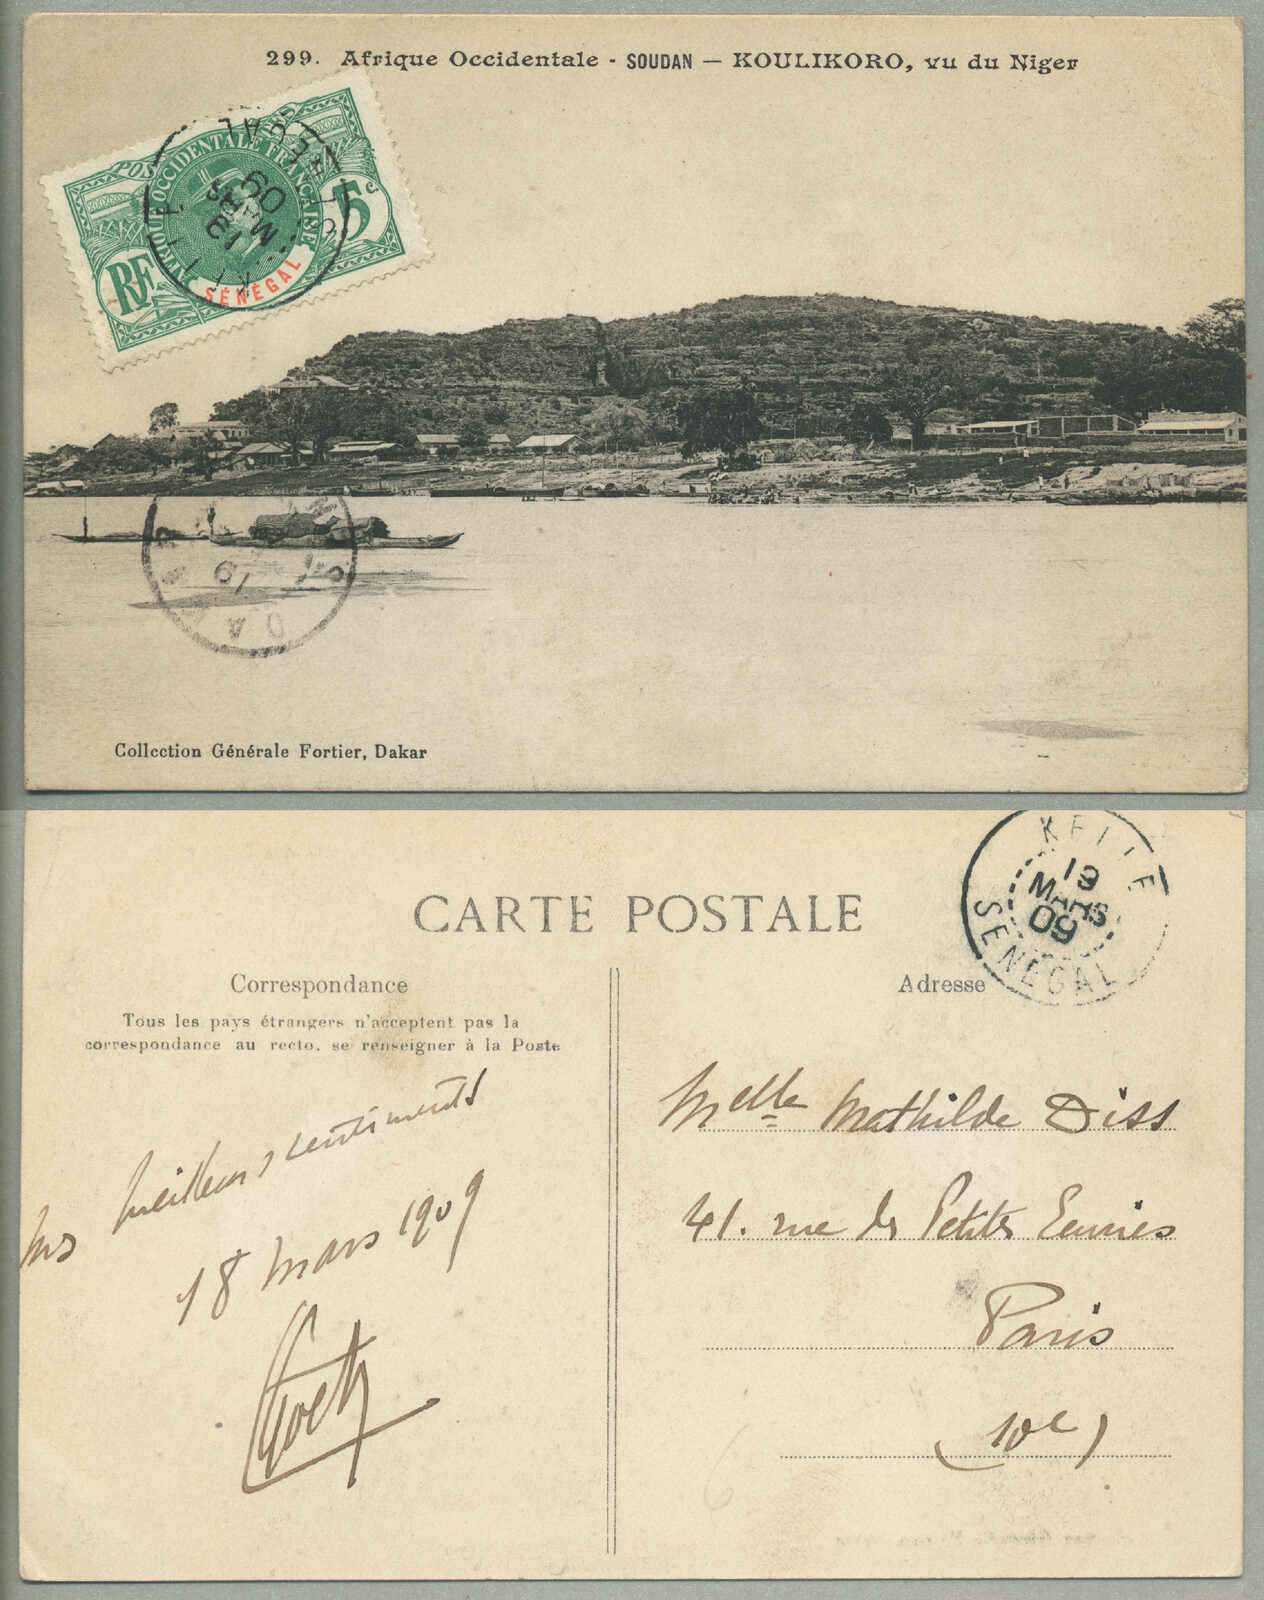 299. Afrique Occidentale - SOUDAN — KOULIKORO, vu du Niger
POS
AFRIQUE OCCIDENTALE FRANÇAISE
5c
RF
SÉNÉGAL
19
MARS
09
DAK
19
Collection Générale Fortier, Dakar
CARTE POSTALE
KELLE
19
MARS
09
SENEGAL
Correspondance
Adresse
Tous les pays étrangers n'acceptent pas la
correspondance au recto. se renseigner à la Poste
mes meilleurs sentiments
18 mars 1909
Melle Mathilde Diss
41. rue des Petites Ecuries
Paris
(10e)